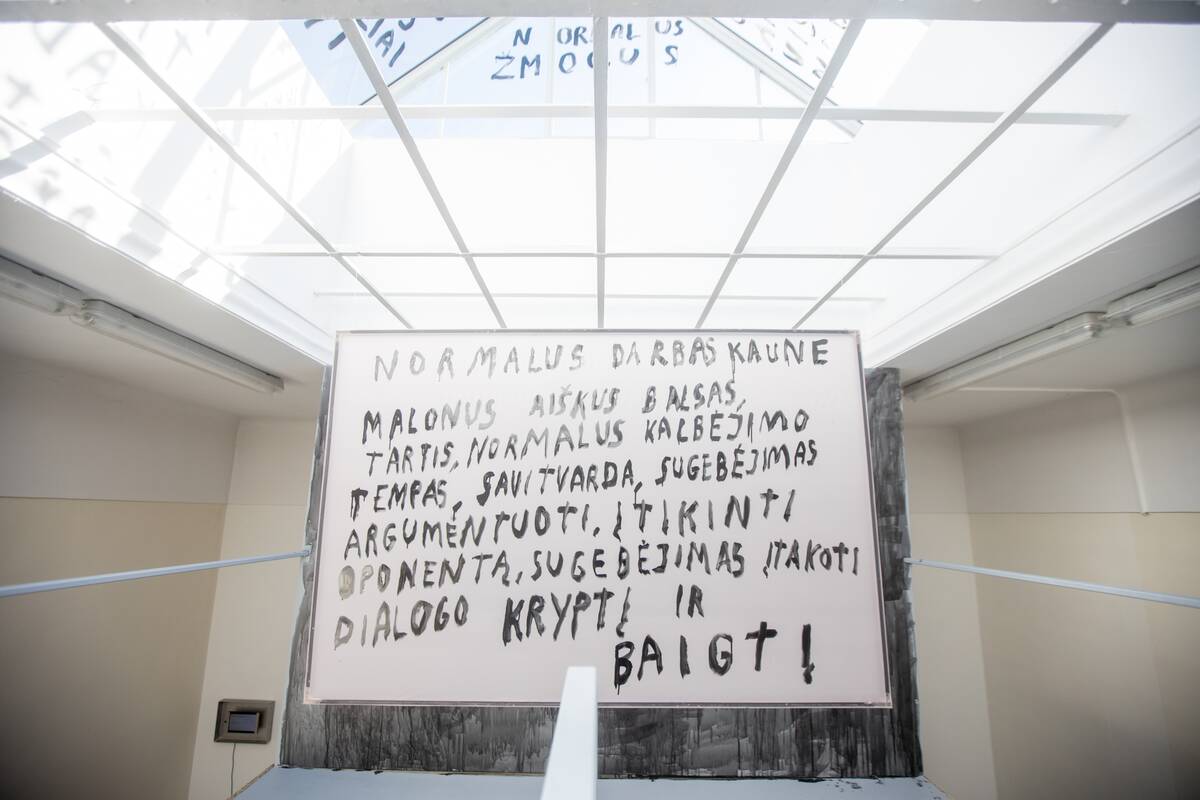 NORMALUS
ŽMOGUS
NORMALUS DARBAS KAUNE
MALONUS AIŠKUS BALSAS,
TARTIS, NORMALUS KALBĖJIMO
TEMPAS, SAVITVARDA, SUGEBĖJIMAS
ARGUMENTUOTI, ĮTIKINTI
OPONENTĄ, SUGEBĖJIMAS ĮTAKOTI
DIALOGO KRYPTĮ IR
BAIGT!